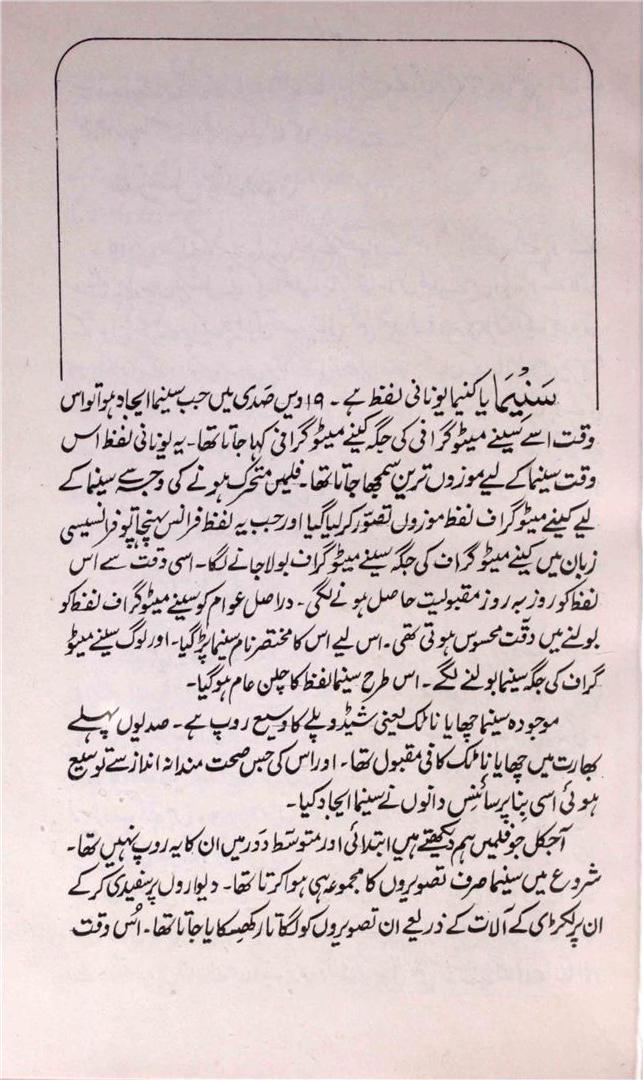 سَنیمَا یا کنیما یونانی لفظ ہے۔ ۱۹ویں صَدی میں جب سینما ایجاد ہوا تو اس
وقت اسے سَینے میٹو گرافی کی جگہ کینے میٹو گرافی کہا جاتا تھا۔ یہ یونانی لفظ اس
وقت سینما کے لیے موزوں ترین سمجھا جاتا تھا۔ فلمیں متحرک ہونے کی وجہ سے سینما کے
لیے کینے میٹو گراف لفظ موزوں تصوّر کر لیا گیا اور جب یہ لفظ فرانس پہنچا تو فرانسیسی
زبان میں کینے میٹو گراف کی جگہ سینے میٹو گراف بولا جانے لگا۔ اسی وقت سے اس
لفظ کو روز بہ روز مقبولیت حاصل ہونے لگی۔ دراصل عوام کو سینے میٹو گراف لفظ کو
بولنے میں دقّت محسوس ہوتی تھی۔ اس لیے اس کا مختصر نام سنیما پڑ گیا۔ اور لوگ سینے میٹو
گراف کی جگہ سنیما بولنے لگے۔ اس طرح سنیما لفظ کا چلن عام ہو گیا۔
موجودہ سنیما چھایا ناٹک یعنی شیڈو پلے کا وسیع روپ ہے۔ صدیوں پہلے
بھارت میں چھایا ناٹک کافی مقبول تھا۔ اور اس کی جس صحت مندانہ انداز سے توسیع
ہوئی اسی بِنا پر سائنس دانوں نے سنیما ایجاد کیا۔
آجکل جو فلمیں ہم دیکھتے ہیں ابتدائی اور متوسط دَور میں ان کا یہ روپ نہیں تھا۔
شروع میں سنیما صرف تصویروں کا مجموعہ ہی ہوا کرتا تھا۔ دیواروں پر سفیدی کر کے
ان پر لکڑی کے آلات کے ذریعے ان تصویروں کو لگاتار کھسکایا جاتا تھا۔ اُس وقت